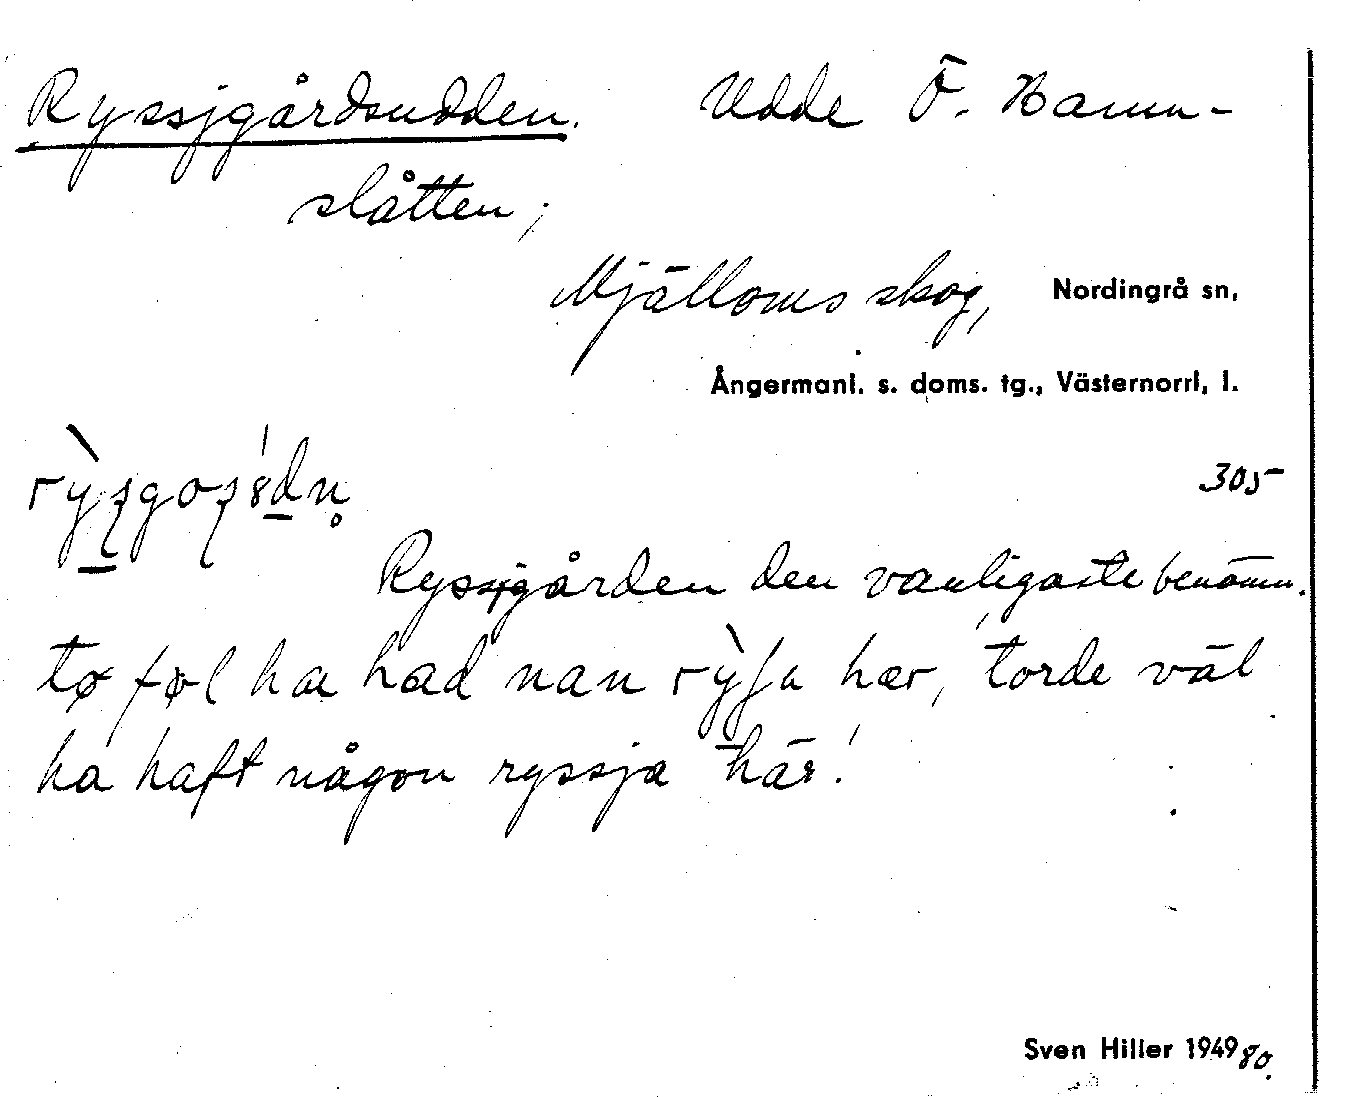 Ryssjgårdsudden. Udde Ö. Hamn-
slåtten,
Mjälloms skog, Nordingrå sn,
Ångermanl. s. doms. tg., Västernorrl. l.
305
Ryssjgården den vanligaste benämn.
tø føl ha had nan rỳʃu hær, torde väl
ha haft någon ryssja här!
Sven Hiller 1949 80.